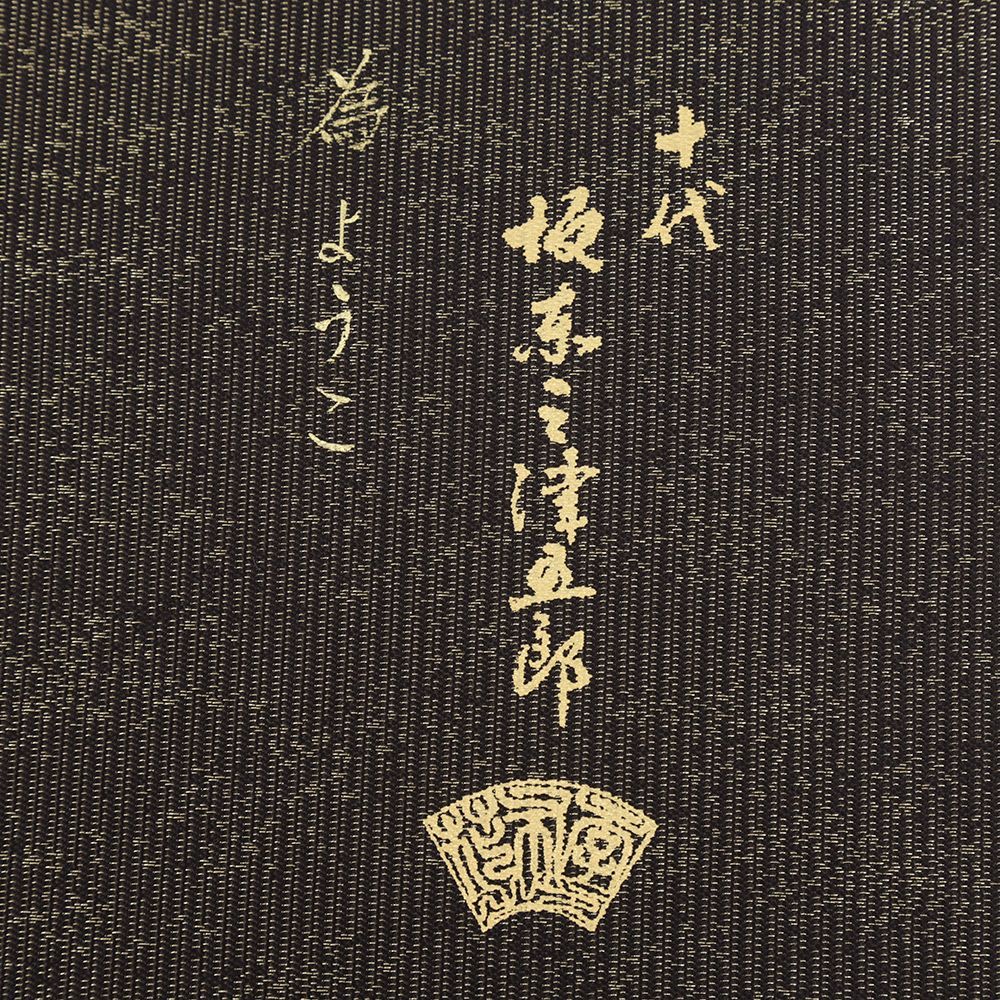 十代
坂東三津五郎
為
ようこ